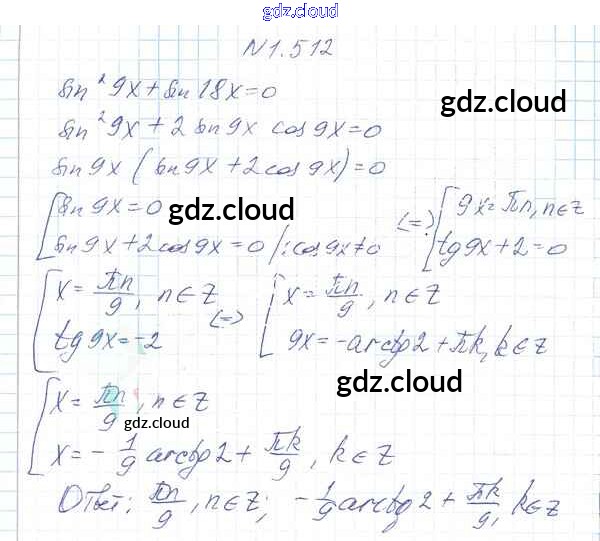 gdz.cloud
N 1.512
sin² 9x + sin 18x = 0
gdz.cloud
sin² 9x + 2 sin 9x cos 9x = 0
sin 9x (sin 9x + 2 cos 9x) = 0
[ sin 9x = 0
gdz.cloud
sin 9x + 2 cos 9x = 0 /: cos 9x ≠ 0
(=) [ 9x = πn, n ∈ Z
tg 9x + 2 = 0
[ x = πn/9, n ∈ Z
tg 9x = -2
(=) [ x = πn/9, n ∈ Z
9x = -arctg 2 + πk, k ∈ Z
gdz.cloud
[ x = πn/9, n ∈ Z
gdz.cloud
x = - 1/9 arctg 2 + πk/9, k ∈ Z
Ответ: πn/9, n ∈ Z; - 1/9 arctg 2 + πk/9, k ∈ Z